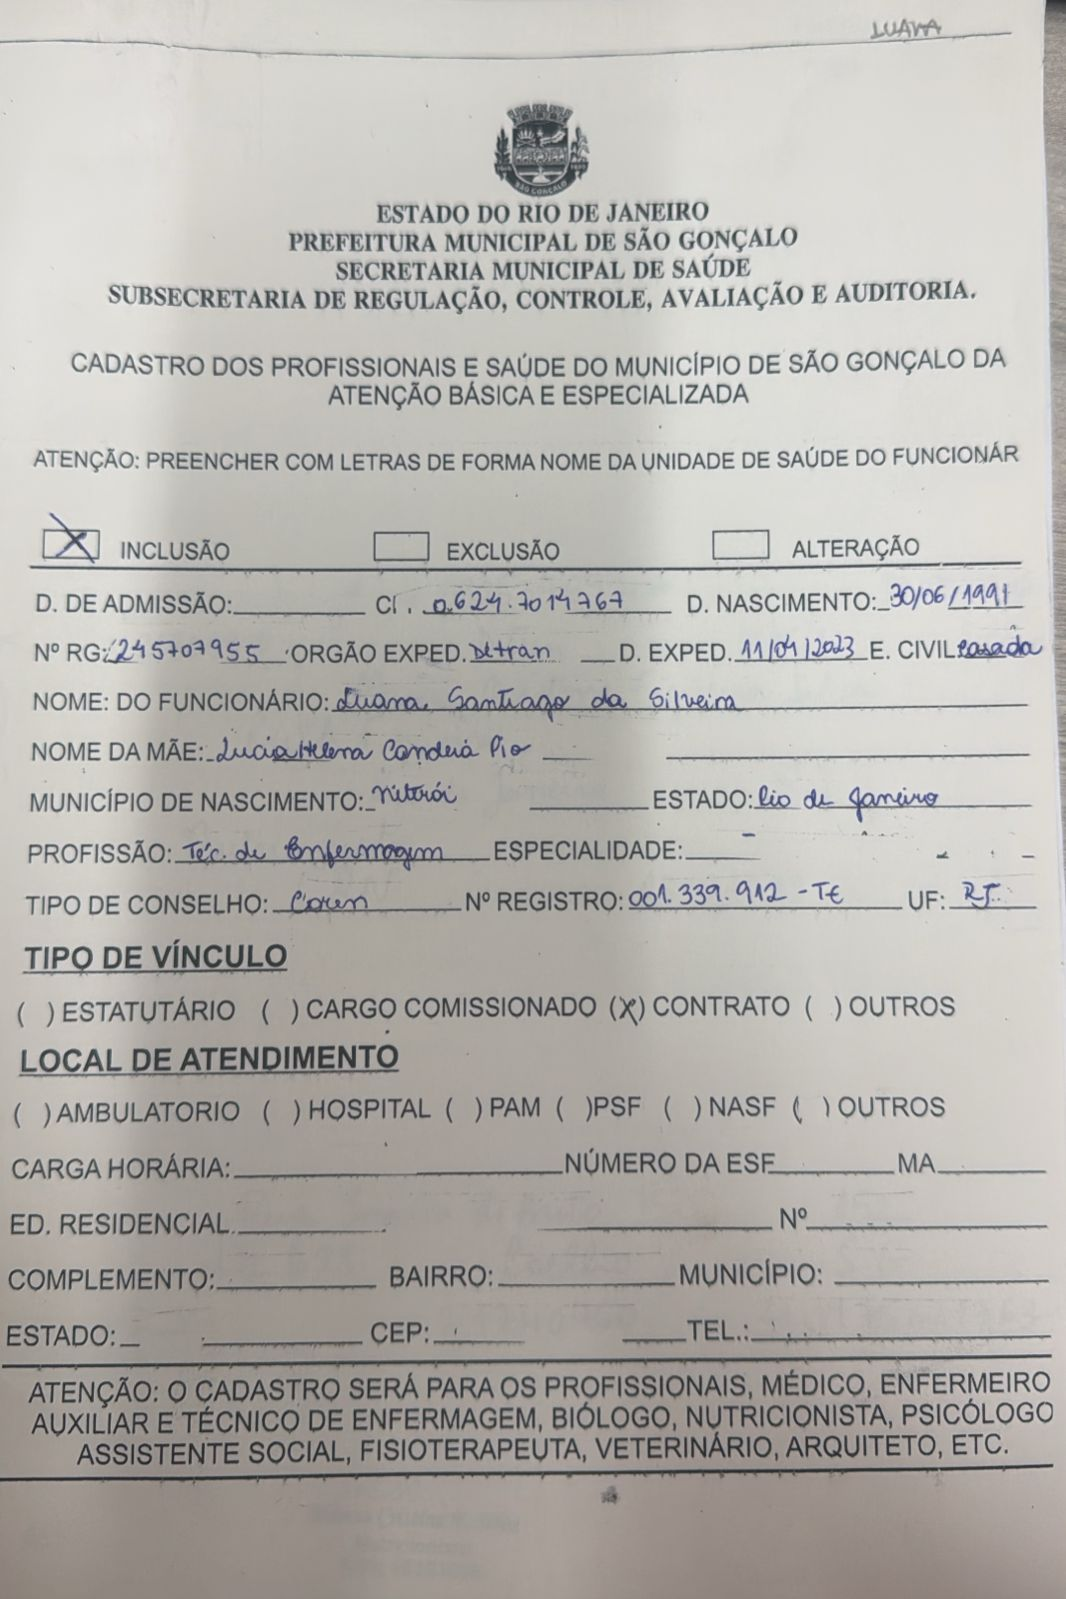 LUANA
SÃO GONÇALO
ESTADO DO RIO DE JANEIRO
PREFEITURA MUNICIPAL DE SÃO GONÇALO
SECRETARIA MUNICIPAL DE SAÚDE
SUBSECRETARIA DE REGULAÇÃO, CONTROLE, AVALIAÇÃO E AUDITORIA.
CADASTRO DOS PROFISSIONAIS E SAÚDE DO MUNICÍPIO DE SÃO GONÇALO DA
ATENÇÃO BÁSICA E ESPECIALIZADA
ATENÇÃO: PREENCHER COM LETRAS DE FORMA NOME DA UNIDADE DE SAÚDE DO FUNCIONÁR
X INCLUSÃO EXCLUSÃO ALTERAÇÃO
D. DE ADMISSÃO: CI . 0.624.7014767 D. NASCIMENTO: 30/06/1991
Nº RG: 245707955 ORGÃO EXPED. Detran D. EXPED. 11/04/2023 E. CIVIL casada
NOME: DO FUNCIONÁRIO: Luana Santiago da Silveira
NOME DA MÃE: Lucia Helena Candeia Pio
MUNICÍPIO DE NASCIMENTO: Niterói ESTADO: Rio de Janeiro
PROFISSÃO: Téc. de Enfermagem ESPECIALIDADE:
TIPO DE CONSELHO: Coren Nº REGISTRO: 001.339.912 - TE UF: RJ
TIPO DE VÍNCULO
( ) ESTATUTÁRIO ( ) CARGO COMISSIONADO (X) CONTRATO ( ) OUTROS
LOCAL DE ATENDIMENTO
( ) AMBULATORIO ( ) HOSPITAL ( ) PAM ( )PSF ( ) NASF ( ) OUTROS
CARGA HORÁRIA: NÚMERO DA ESF MA
ED. RESIDENCIAL. Nº
COMPLEMENTO: BAIRRO: MUNICÍPIO:
ESTADO: CEP: TEL.:
ATENÇÃO: O CADASTRO SERÁ PARA OS PROFISSIONAIS, MÉDICO, ENFERMEIRO
AUXILIAR E TÉCNICO DE ENFERMAGEM, BIÓLOGO, NUTRICIONISTA, PSICÓLOGO
ASSISTENTE SOCIAL, FISIOTERAPEUTA, VETERINÁRIO, ARQUITETO, ETC.